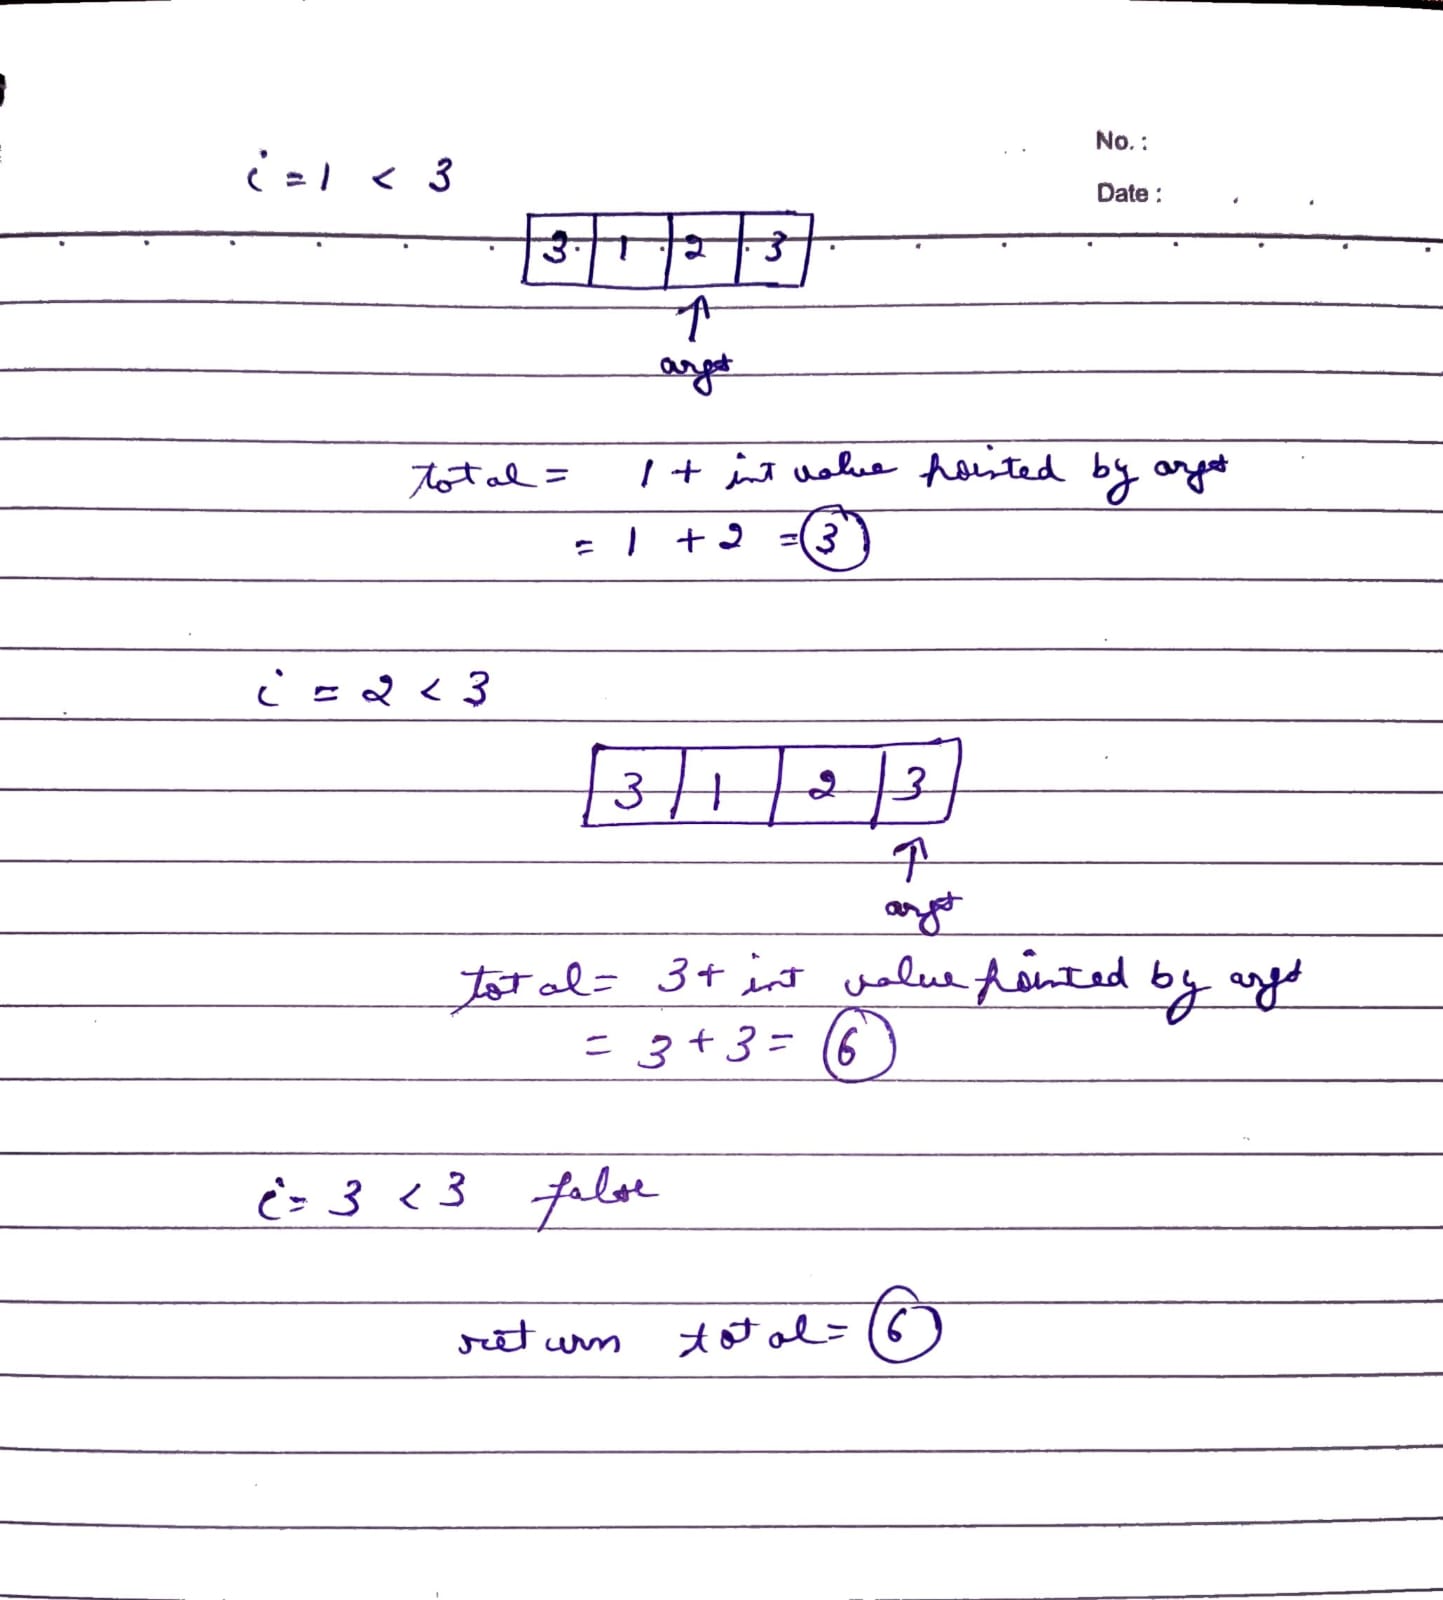 No. :
i = 1 < 3
Date :
3 1 2 3
↑
total = 1 + int value pointed by
= 1 + 2 = 3
i = 2 < 3
3 1 2 3
↑
total = 3 + int value pointed by
= 3 + 3 = 6
i = 3 < 3 false
return total = 6